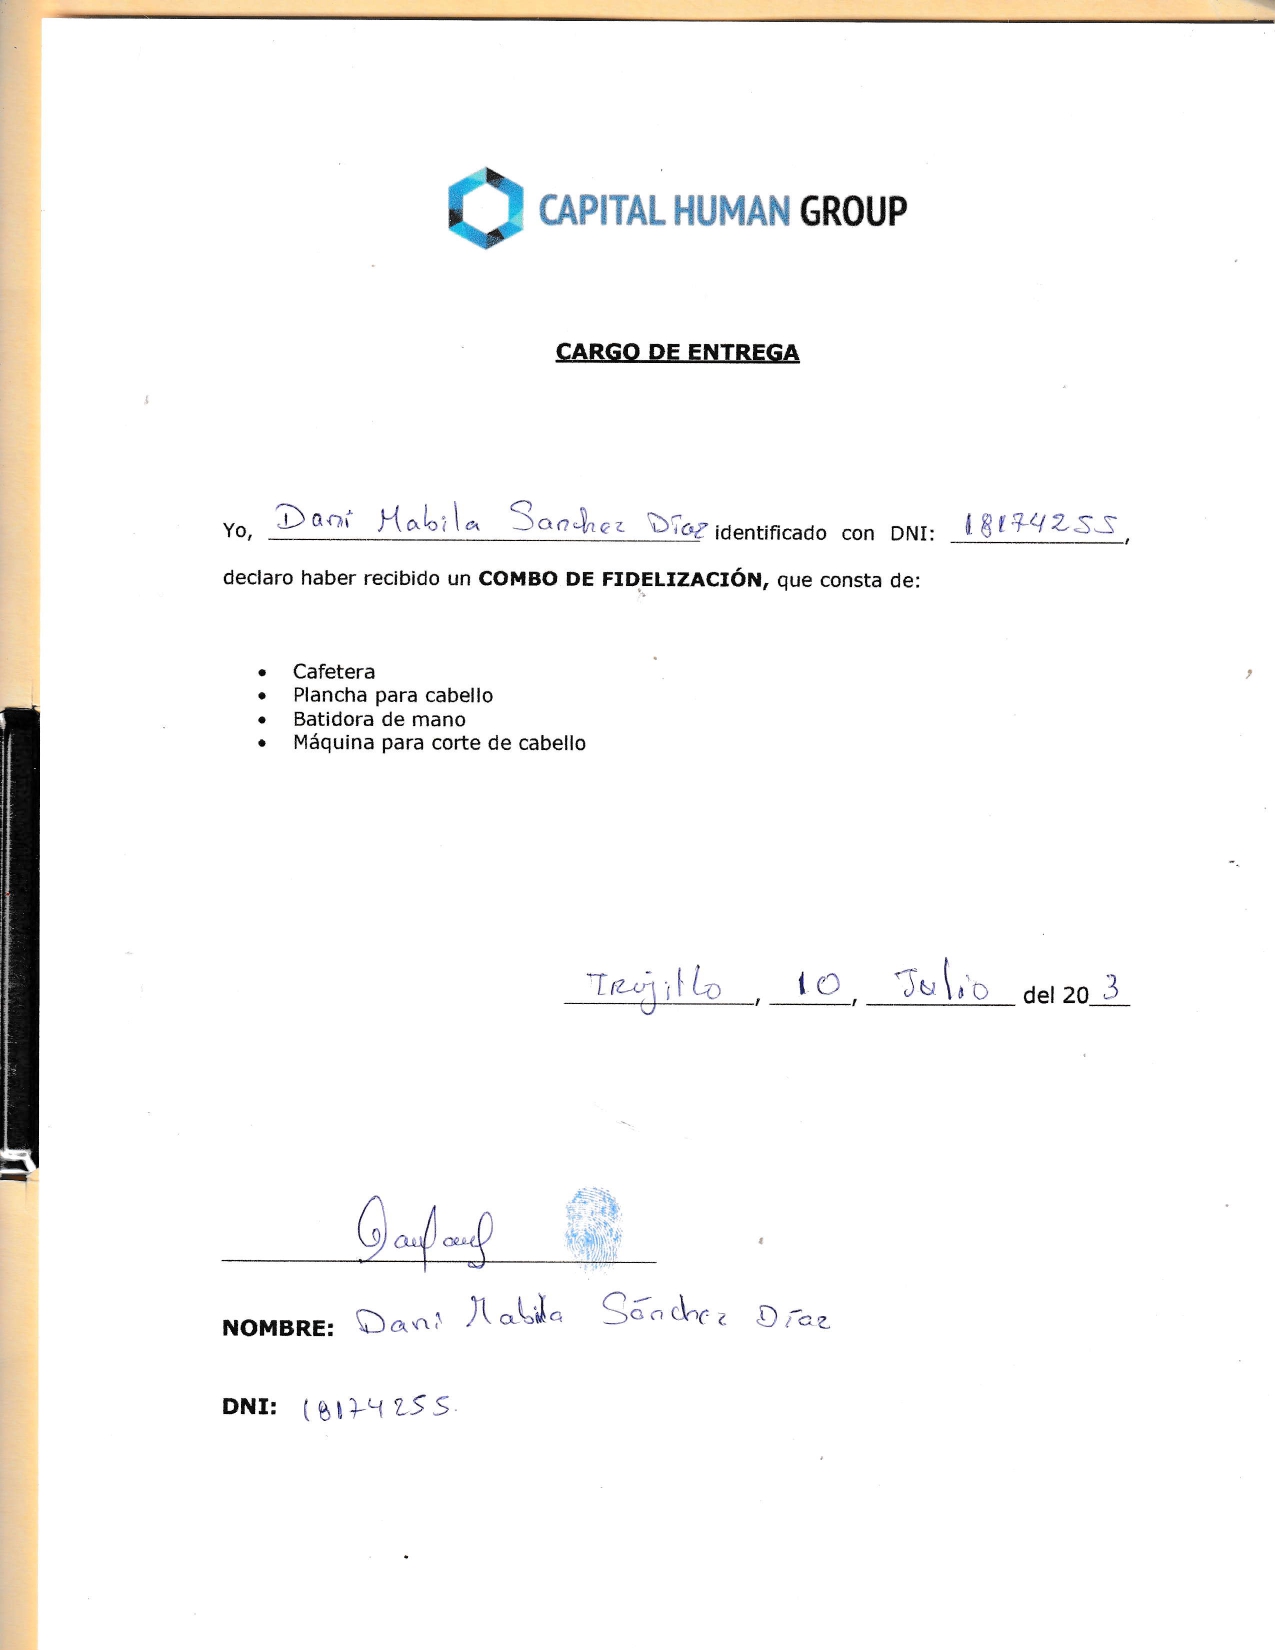 CAPITAL HUMAN GROUP
CARGO DE ENTREGA
Yo, Dani Mabila Sanchez Díaz identificado con DNI: 18174255,
declaro haber recibido un COMBO DE FIDELIZACIÓN, que consta de:
• Cafetera
• Plancha para cabello
• Batidora de mano
• Máquina para corte de cabello
Trujillo, 10, Julio del 20 3
NOMBRE: Dani Mabila Sánchez Díaz
DNI: 18174255.